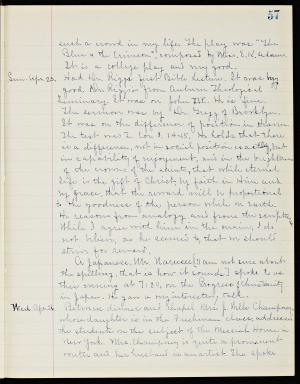 57
such a crowd in my life. The play was "The
Blue & the Crimson", composed by Miss. E. N. Adams.
It is a college play and very good.
Sun. Apr. 23. Had Dr. Riggs' first Bible lecture. It was very
good. Dr. Riggs is from Auburn Theological
Seminary. It was on John III. He is fine.
The sermon was by Dr. Gregg of Brooklyn.
It was on the differences of position in Heaven.
The text was I Cor. He holds that there
is a difference, not in social position exactly, but
in capability of enjoyment, and in the brightness
of the crowns of the saints; that while eternal
life is the gift of Christ by faith in Him and
by grace, that the reward will be proportional
to the goodness of the person while on earth.
He reasons from analogy and from the scripture.
While I agree with him in the main, I do
not believe, as he seemed to, that we should
strive for reward.
A Japanese, Mr. (I am not sure about
the spelling, that is how it sounds) spoke to us
this evening at 7:30, on the Progress of Christianity
in Japan. He gave a very interesting talk.
Wed. Apr. 26. Between dinner and chapel Mrs. J. Wells Champney,
whose daughter is in the Freshman class, addressed
the students on the subject of the Messiah Home in
New York. Mrs. Champney is quite a prominent
writer and her husband is an artist. She spoke